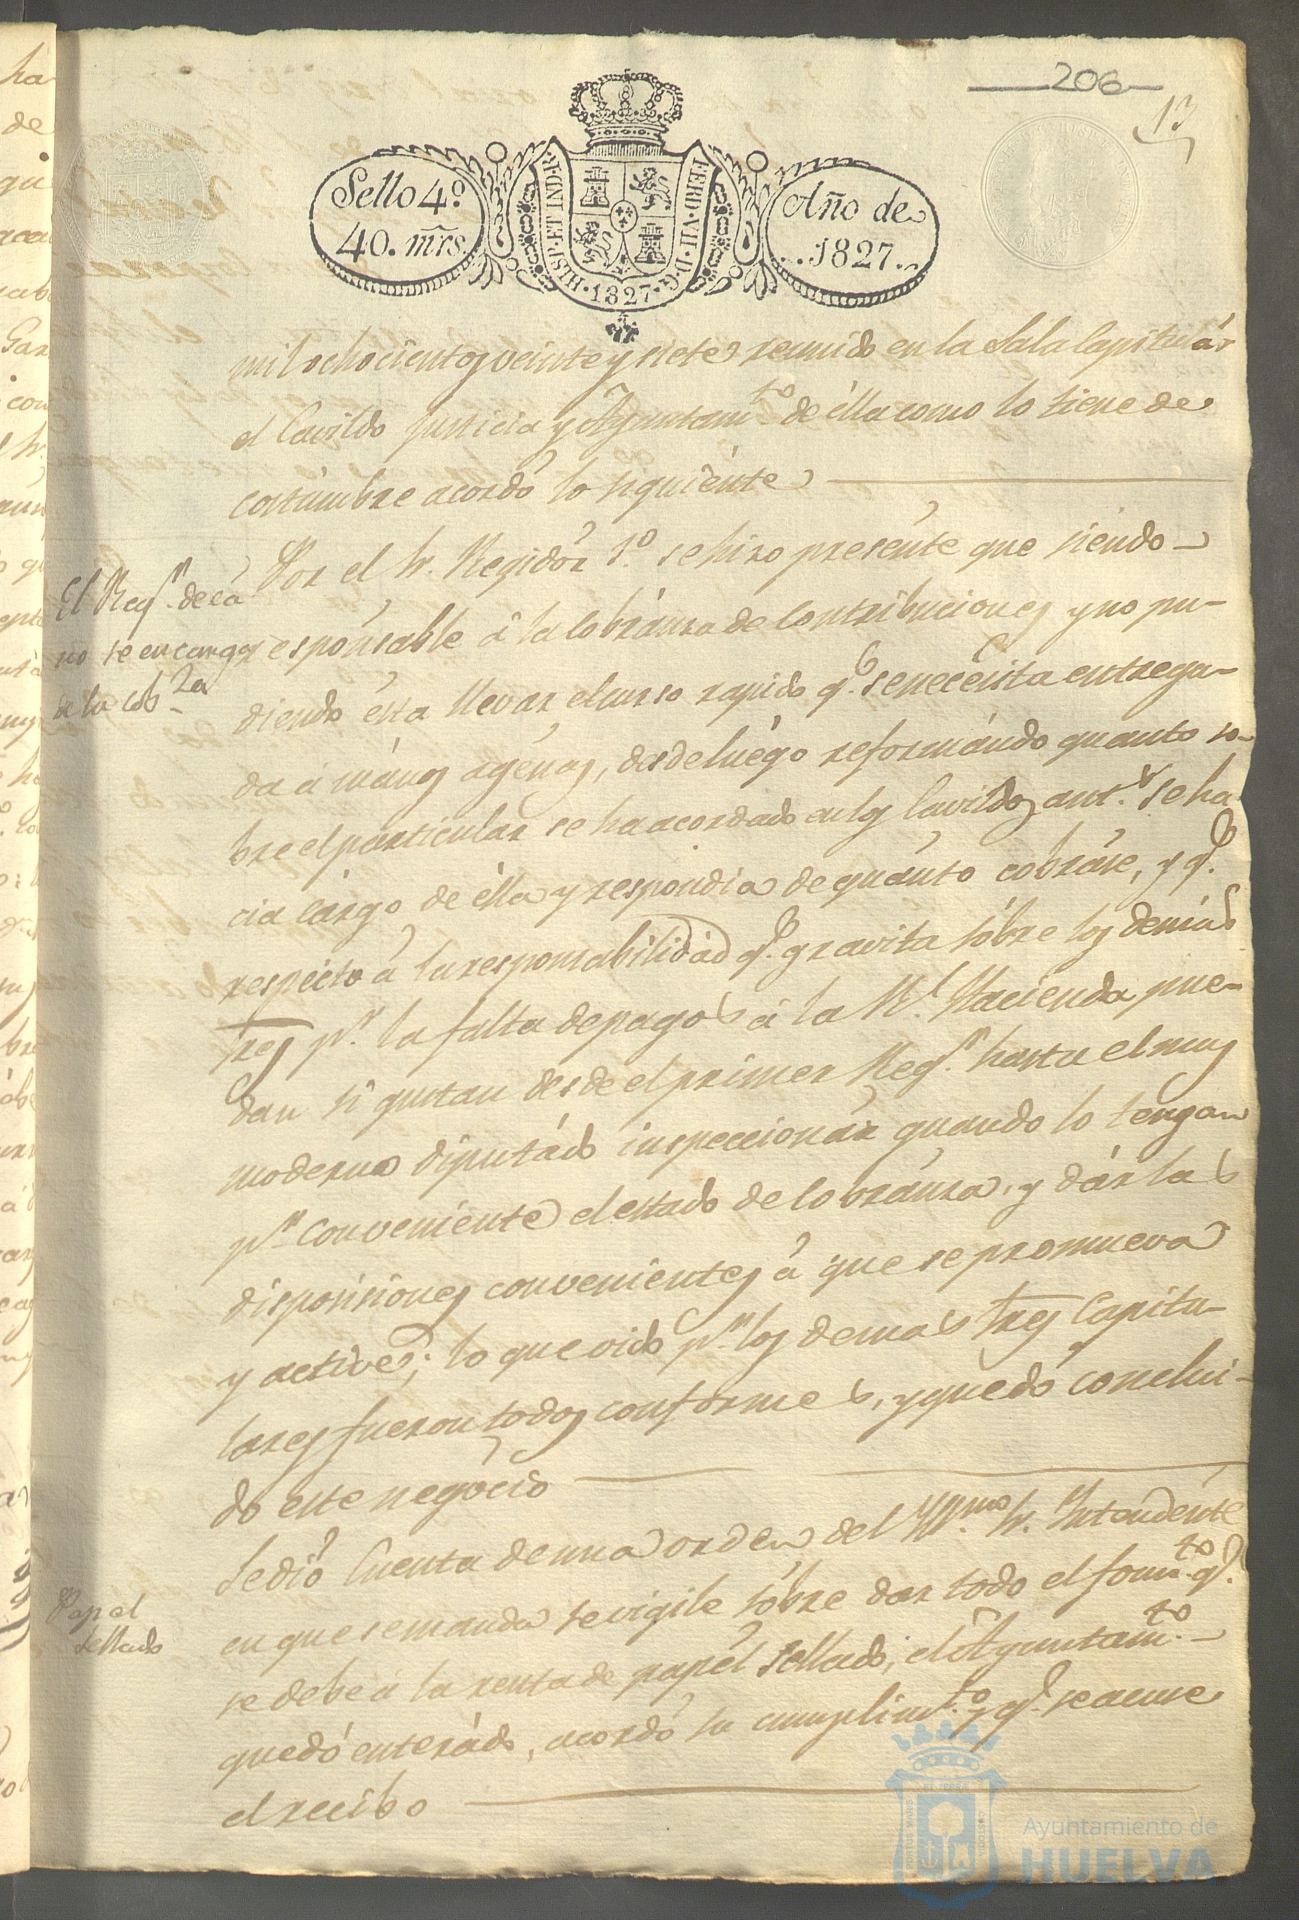 206
13
Sello 4º.
40. mrs.
HISP. ET IND. R.
FERD. VII. D. G.
1827
Año de
1827.
mil ochocientos veinte y siete reunido en la Sala Capitulár
el Cavildo Justicia y Ayuntamto. de élla como lo tiene de
costúmbre acordó lo siguiénte
Por el Sr. Regidór 1º. se hizo presénte que siéndo
responsáble á la Cobránza de Contribuciones y no pu-
diendo ésta llevar el curso rapido q. se necésita entrega-
da á mános agénas, desde luégo reformándo quanto so-
bre el particular se ha acordado en los Cavildos ants. se ha
cia cárgo de élla y respondia de quánto cobráse, y q.
respécto á la responsabilidad q. gravita sóbre los demás
pr. la falta de pagos á la Rl. Hacienda pue-
dan si gustan desde el primer Regr. hasta el muy
moderno diputádo inspeccionár quando lo tengan
pr. conveniente el estado de Cobránza, y dár las
disposisiones convenientes á que se promueva
y active; lo que oido pr. los demas Sres Capitu-
lares fueron todos conformes, y quedó conclui-
do este negócio
Se dió Cuenta de una orden del Yllmo. Sr. Yntendénte
en que se manda se vigile sóbre dar todo el fomto. q.
se debe á la renta de papél Sellado; el Ayuntamto.
quedó enterádo, acordó su cumplimto. y q. se acuse
el recibo
El Regr. decá
no se encarga
de la cobza
Papel
Sellado
Ayuntamiento de
HUELVA